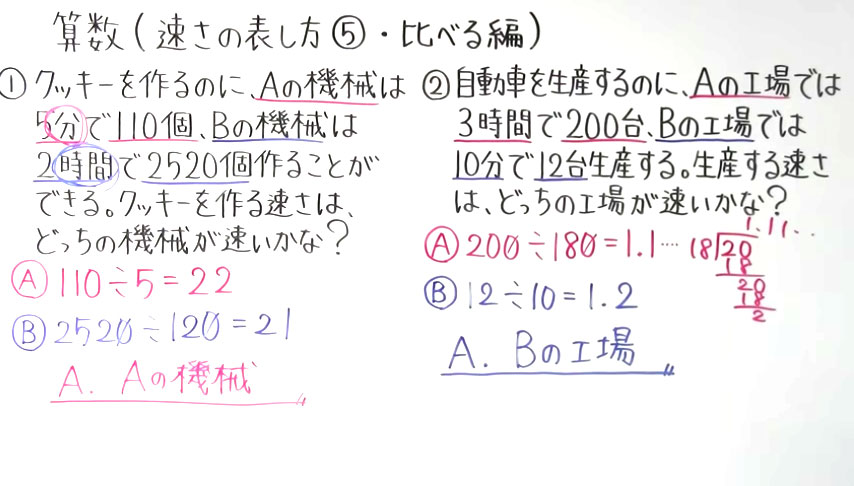 算数(速さの表し方⑤・比べる編)
① クッキーを作るのに、Aの機械は
5分で110個、Bの機械は
2時間で2520個作ることが
できる。クッキーを作る速さは、
どっちの機械が速いかな?
Ⓐ 110÷5=22
Ⓑ 2520÷120=21
A. Aの機械
② 自動車を生産するのに、Aの工場では
3時間で200台、Bの工場では
10分で12台生産する。生産する速さ
は、どっちの工場が速いかな?
Ⓐ 200÷180=1.1‥‥
1.11‥
18)20
18
20
18
2
Ⓑ 12÷10=1.2
A. Bの工場